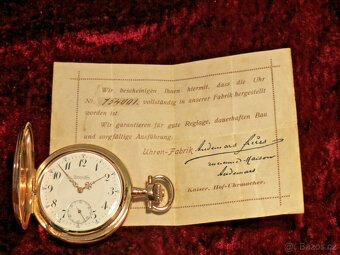 Wir bescheinigen Ihnen hiermit, dass die Uhr
No. 754001. vollständig in unserer Fabrik hergestellt
worden ist.
Wir garantieren für gute Reglage, dauerhaften Bau
und sorgfältige Ausführung.
Uhren-Fabrik Audemars frères
Kaiser. Hof-Uhrmacher.
Bazos.cz